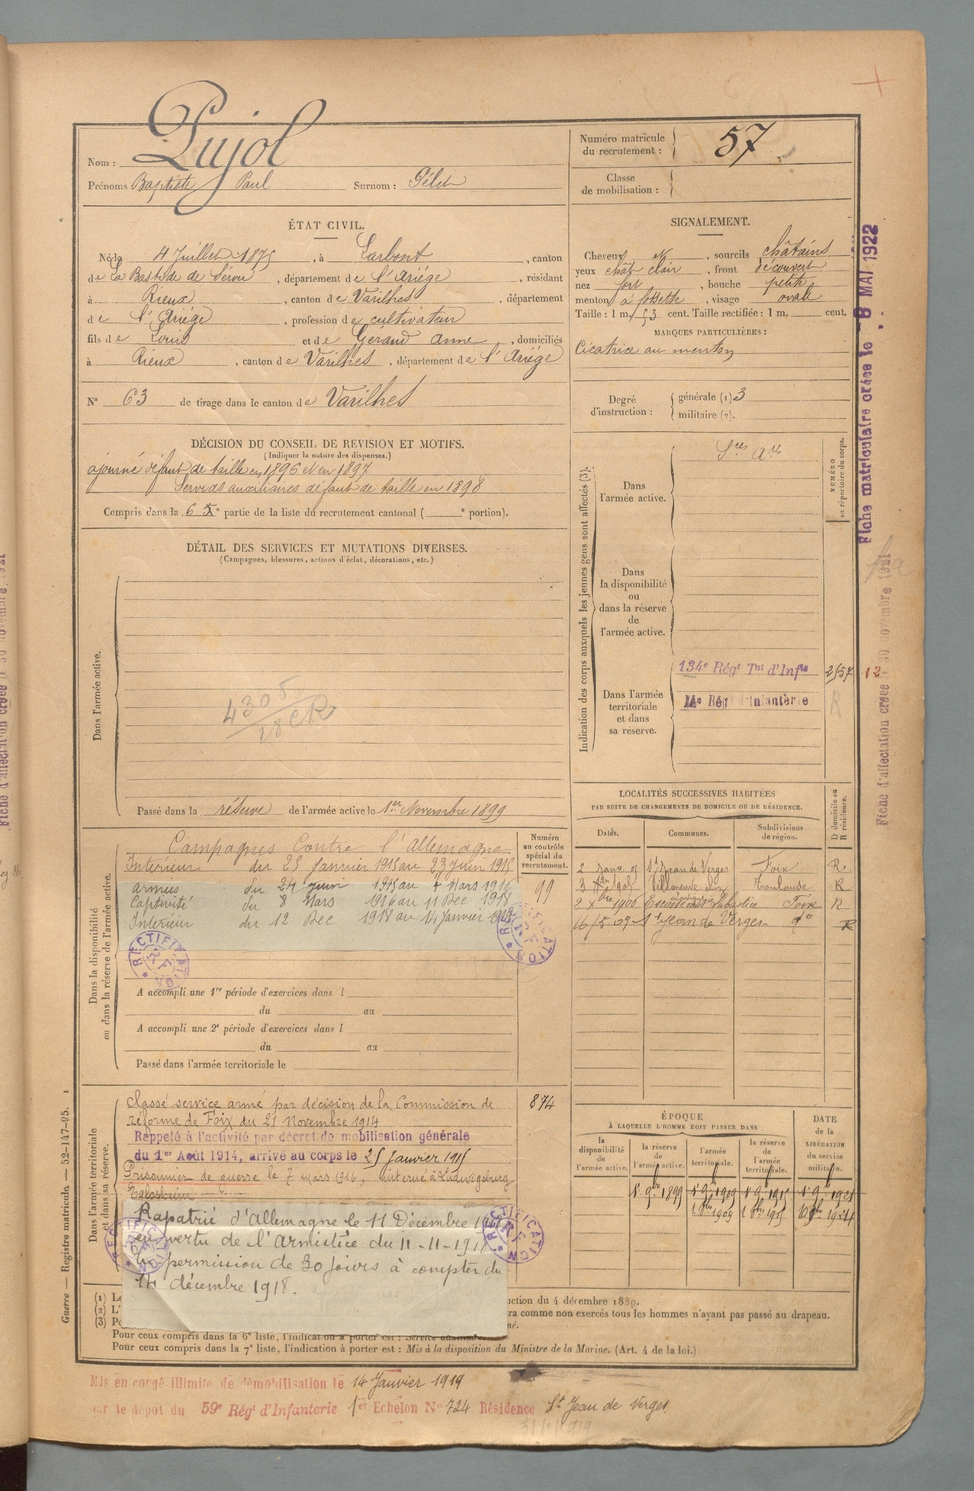 Pujol
Nom :
Prénoms Baptiste Paul Surnom : Félix
Numéro matricule du recrutement : 57
Classe de mobilisation :
ÉTAT CIVIL.
Né le 4 Juillet 1875, à Larbont, canton
de La Bastide de Sérou, département de l'Ariège, résidant
à Rieux, canton de Varilhes, département
de l'Ariège, profession de cultivateur
fils de Louis et de Gérand Anne, domiciliés
à Rieux, canton de Varilhes, département de l'Ariège
N° 63 de tirage dans le canton de Varilhes
SIGNALEMENT.
Cheveux et, sourcils châtains
yeux chât clair, front découvert
nez fort, bouche petite
menton à fossette, visage ovale
Taille : 1 m. 53 cent. Taille rectifiée : 1 m. cent.
MARQUES PARTICULIÈRES :
Cicatrice au menton
Degré d'instruction : générale (1) 3
militaire (2).
DÉCISION DU CONSEIL DE REVISION ET MOTIFS.
(Indiquer la nature des dispenses.)
ajourné défaut de taille en 1896 et en 1897
Services auxiliaires défaut de taille en 1898
Compris dans la 6e partie de la liste du recrutement cantonal ( e portion).
DÉTAIL DES SERVICES ET MUTATIONS DIVERSES.
(Campagnes, blessures, actions d'éclat, décorations, etc.)
Dans l'armée active.
Passé dans la réserve de l'armée active le 1er Novembre 1899
Indication des corps auxquels les jeunes gens sont affectés (3).
NUMÉRO au répertoire du corps.
Dans l'armée active.
Dans la disponibilité ou dans la réserve de l'armée active.
Dans l'armée territoriale et dans sa réserve.
134e Régt Tal d'Infie
14e Régt d'Infanterie
Fiche matriculaire créée le 8 MAI 1922
Fiche d'affectation créée le 30 novembre 1921
Dans la disponibilité ou dans la réserve de l'armée active.
Numéro au contrôle spécial du recrutement.
Campagnes Contre l'Allemagne
Intérieur du 25 Janvier 1915 au 23 Juin 1915
armées du 24 juin 1915 au 7 Mars 1916
Captivité du 8 Mars 1916 au 11 Dec 1918
Intérieur du 12 Dec 1918 au 14 janvier 1919
99
RECTIFICATION
A accompli une 1re période d'exercices dans l
du au
A accompli une 2e période d'exercices dans l
du au
Passé dans l'armée territoriale le
LOCALITÉS SUCCESSIVES HABITÉES
PAR SUITE DE CHANGEMENTS DE DOMICILE OU DE RÉSIDENCE.
Dates. Communes. Subdivisions de région. D domicile ou R résidence.
St Jean de Verges Foix R
Toulouse R
Foix R
16/5 09 St Jean de Verges do R
Dans l'armée territoriale et dans sa réserve.
classé service armé par décision de la Commission de
réforme de Foix du 21 Novembre 1914
Rappelé à l'activité par décret de mobilisation générale
du 1er Août 1914, arrivé au corps le 25 Janvier 1915
Prisonnier de guerre le 7 mars 1916, interné à Ludwigsburg
Eglosheim
Rapatrié d'Allemagne le 11 Décembre
en vertu de l'Armistice du 11-11-191
permission de 30 jours à compter du
14 décembre 1918.
874
RECTIFICATION
ÉPOQUE
À LAQUELLE L'HOMME DOIT PASSER DANS
la disponibilité de l'armée active.
la réserve de l'armée active.
l'armée territoriale.
la réserve de l'armée territoriale.
DATE de la LIBÉRATION du service militaire.
1er 9bre 1899
Guerre — Registre matricule. — 52-147-95.
(1)
(2) L'
(3)
uction du 4 décembre 1889.
ra comme non exercés tous les hommes n'ayant pas passé au drapeau.
Pour ceux compris dans la 6e liste, l'indication à porter est :
Pour ceux compris dans la 7e liste, l'indication à porter est : Mis à la disposition du Ministre de la Marine. (Art. 4 de la loi.)
Mis en congé illimité de démobilisation le 14 Janvier 1919
par le dépôt du 59e Régt d'Infanterie 1er Echelon N° 724 Résidence St Jean de Verges